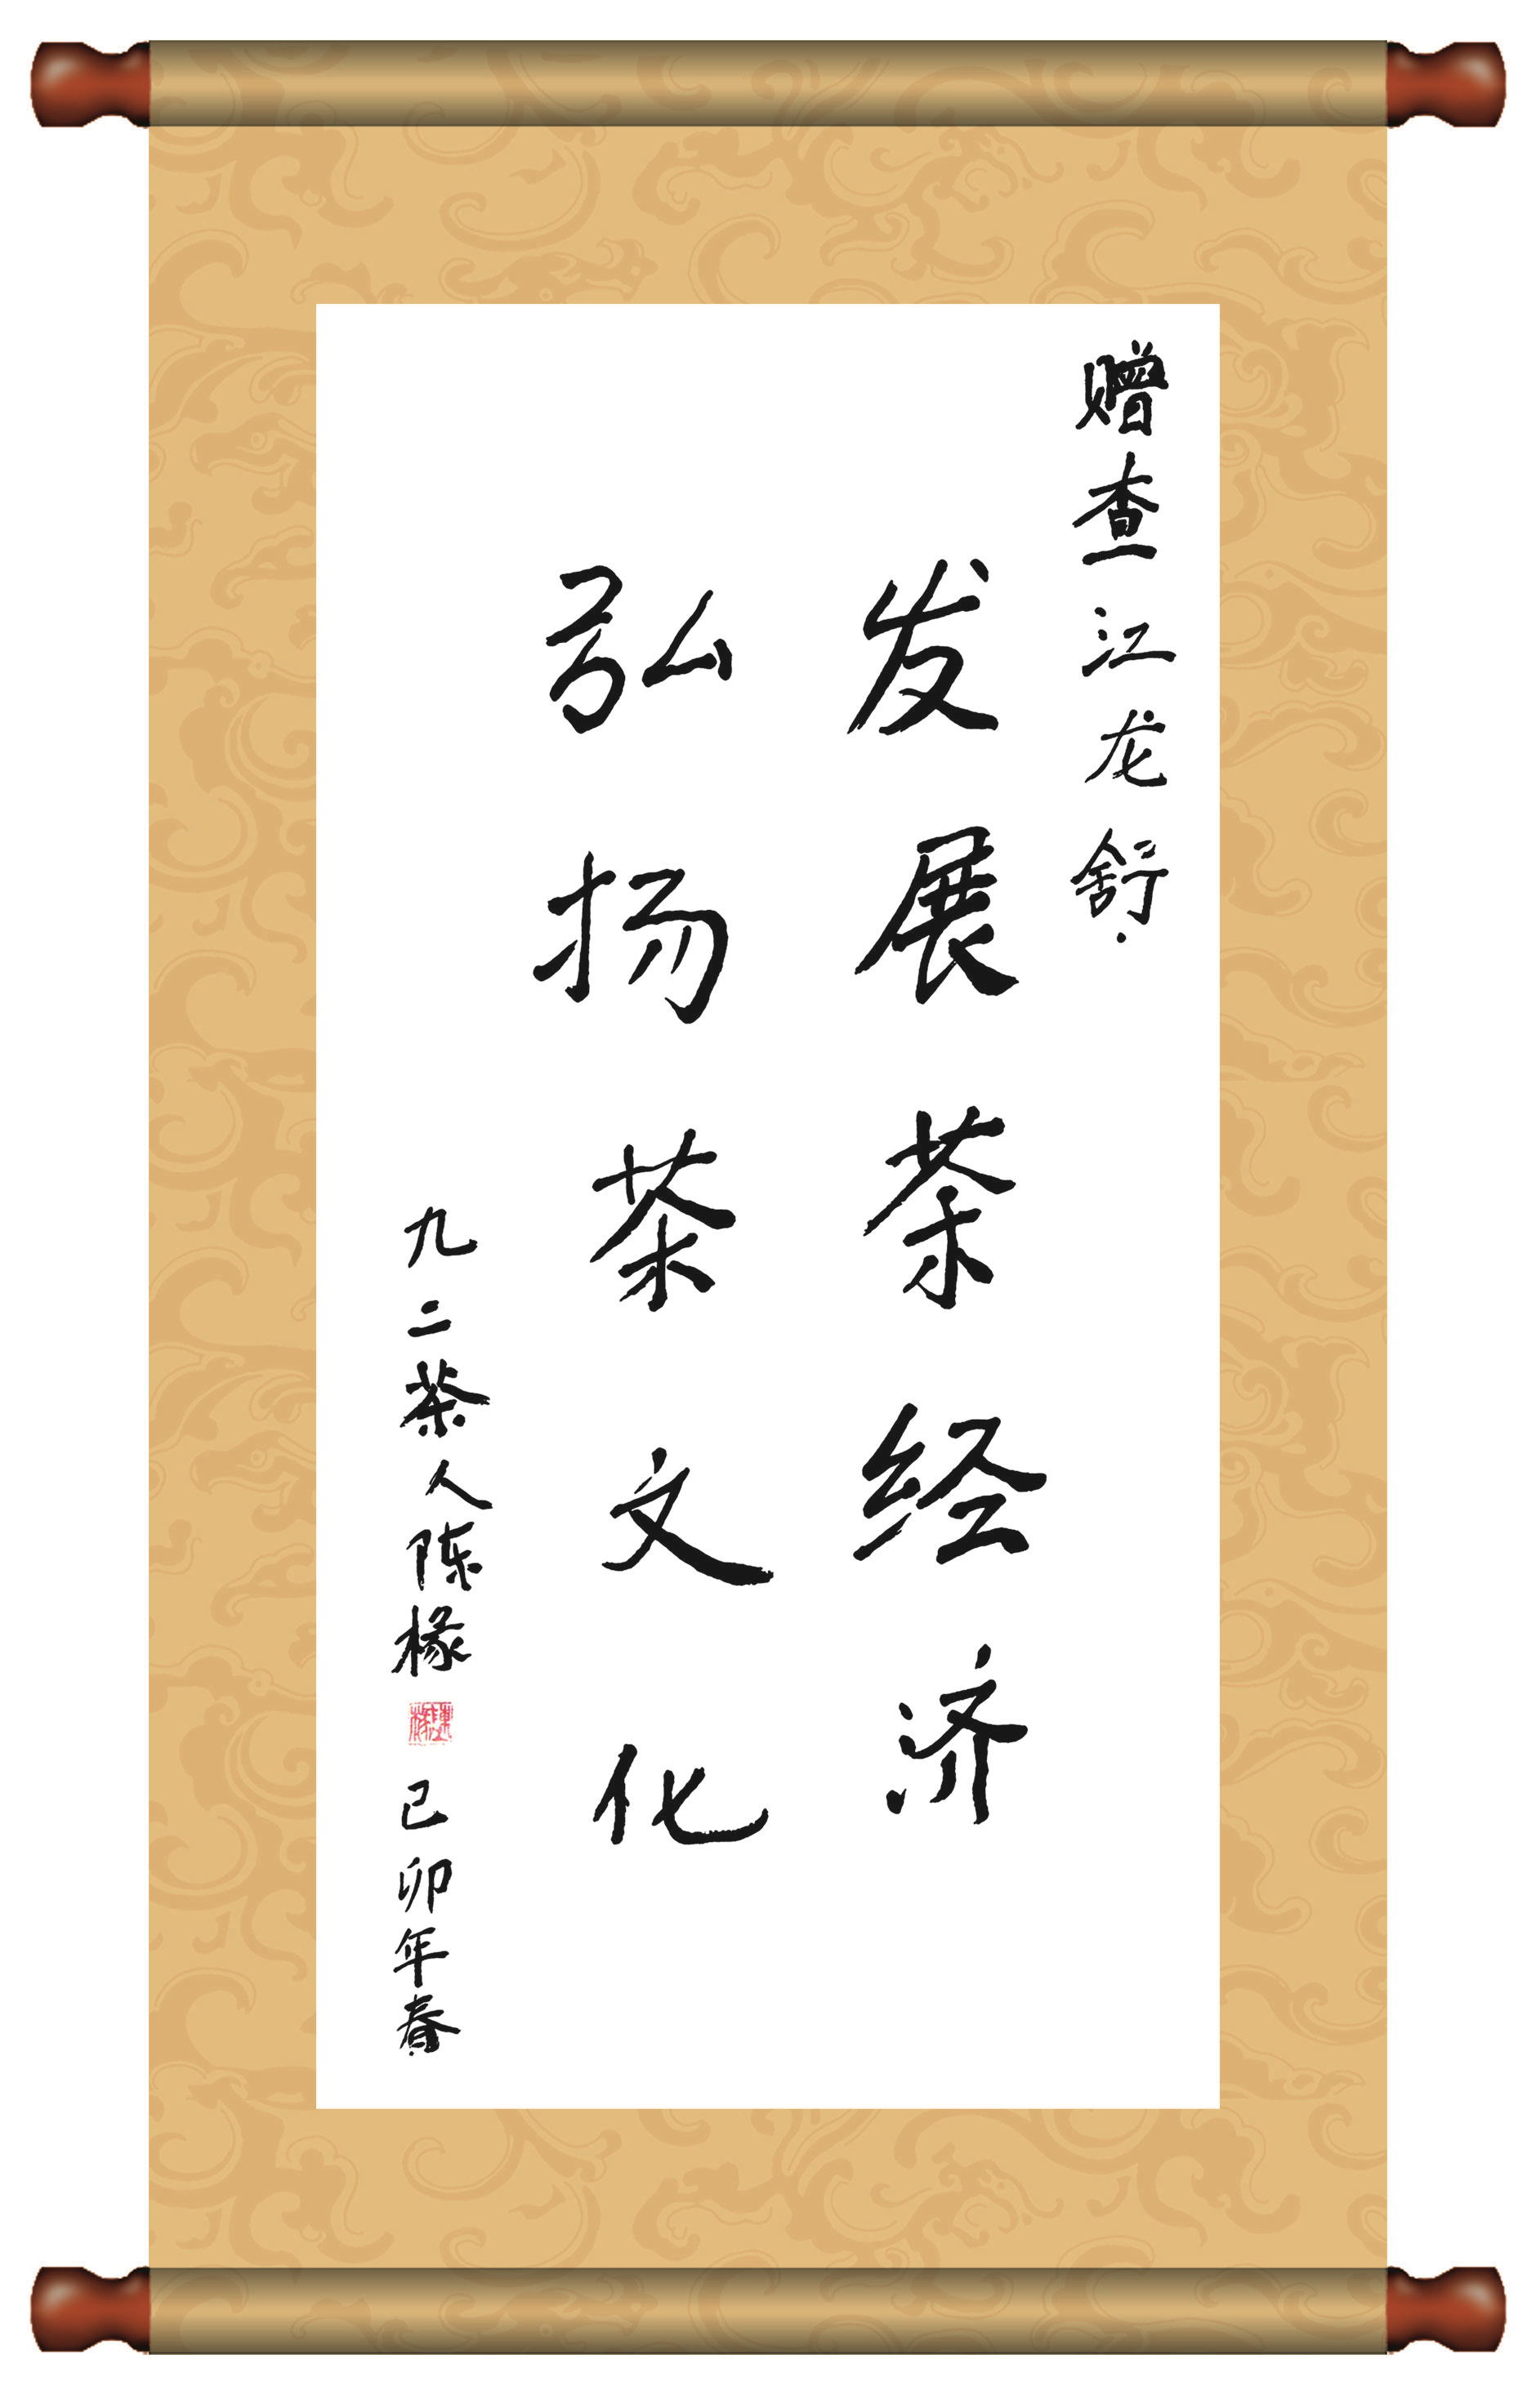 赠查江龙舒.
发展茶经济
弘扬茶文化
九二茶人陈椽
陳椽
己卯年春